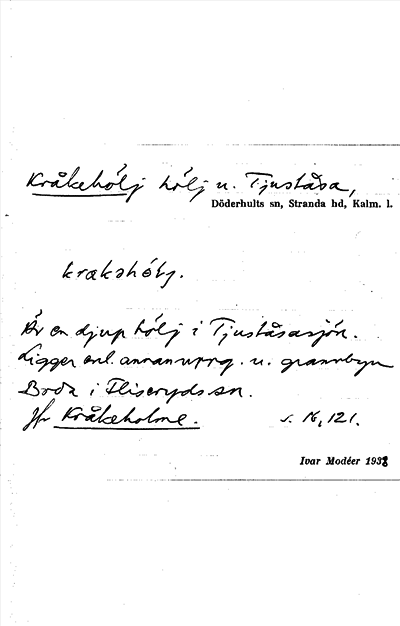 Kråkehölj hölj u. Tjuståsa,
Döderhults sn, Stranda hd, Kalm. l.
Är en djup hölj i Tjuståsasjön.
Ligger enl. annan uppg. u. grannbyn
Boda i Fliseryds sn.
Jfr Kråkeholme. s. 16, 121.
Ivar Modéer 1938